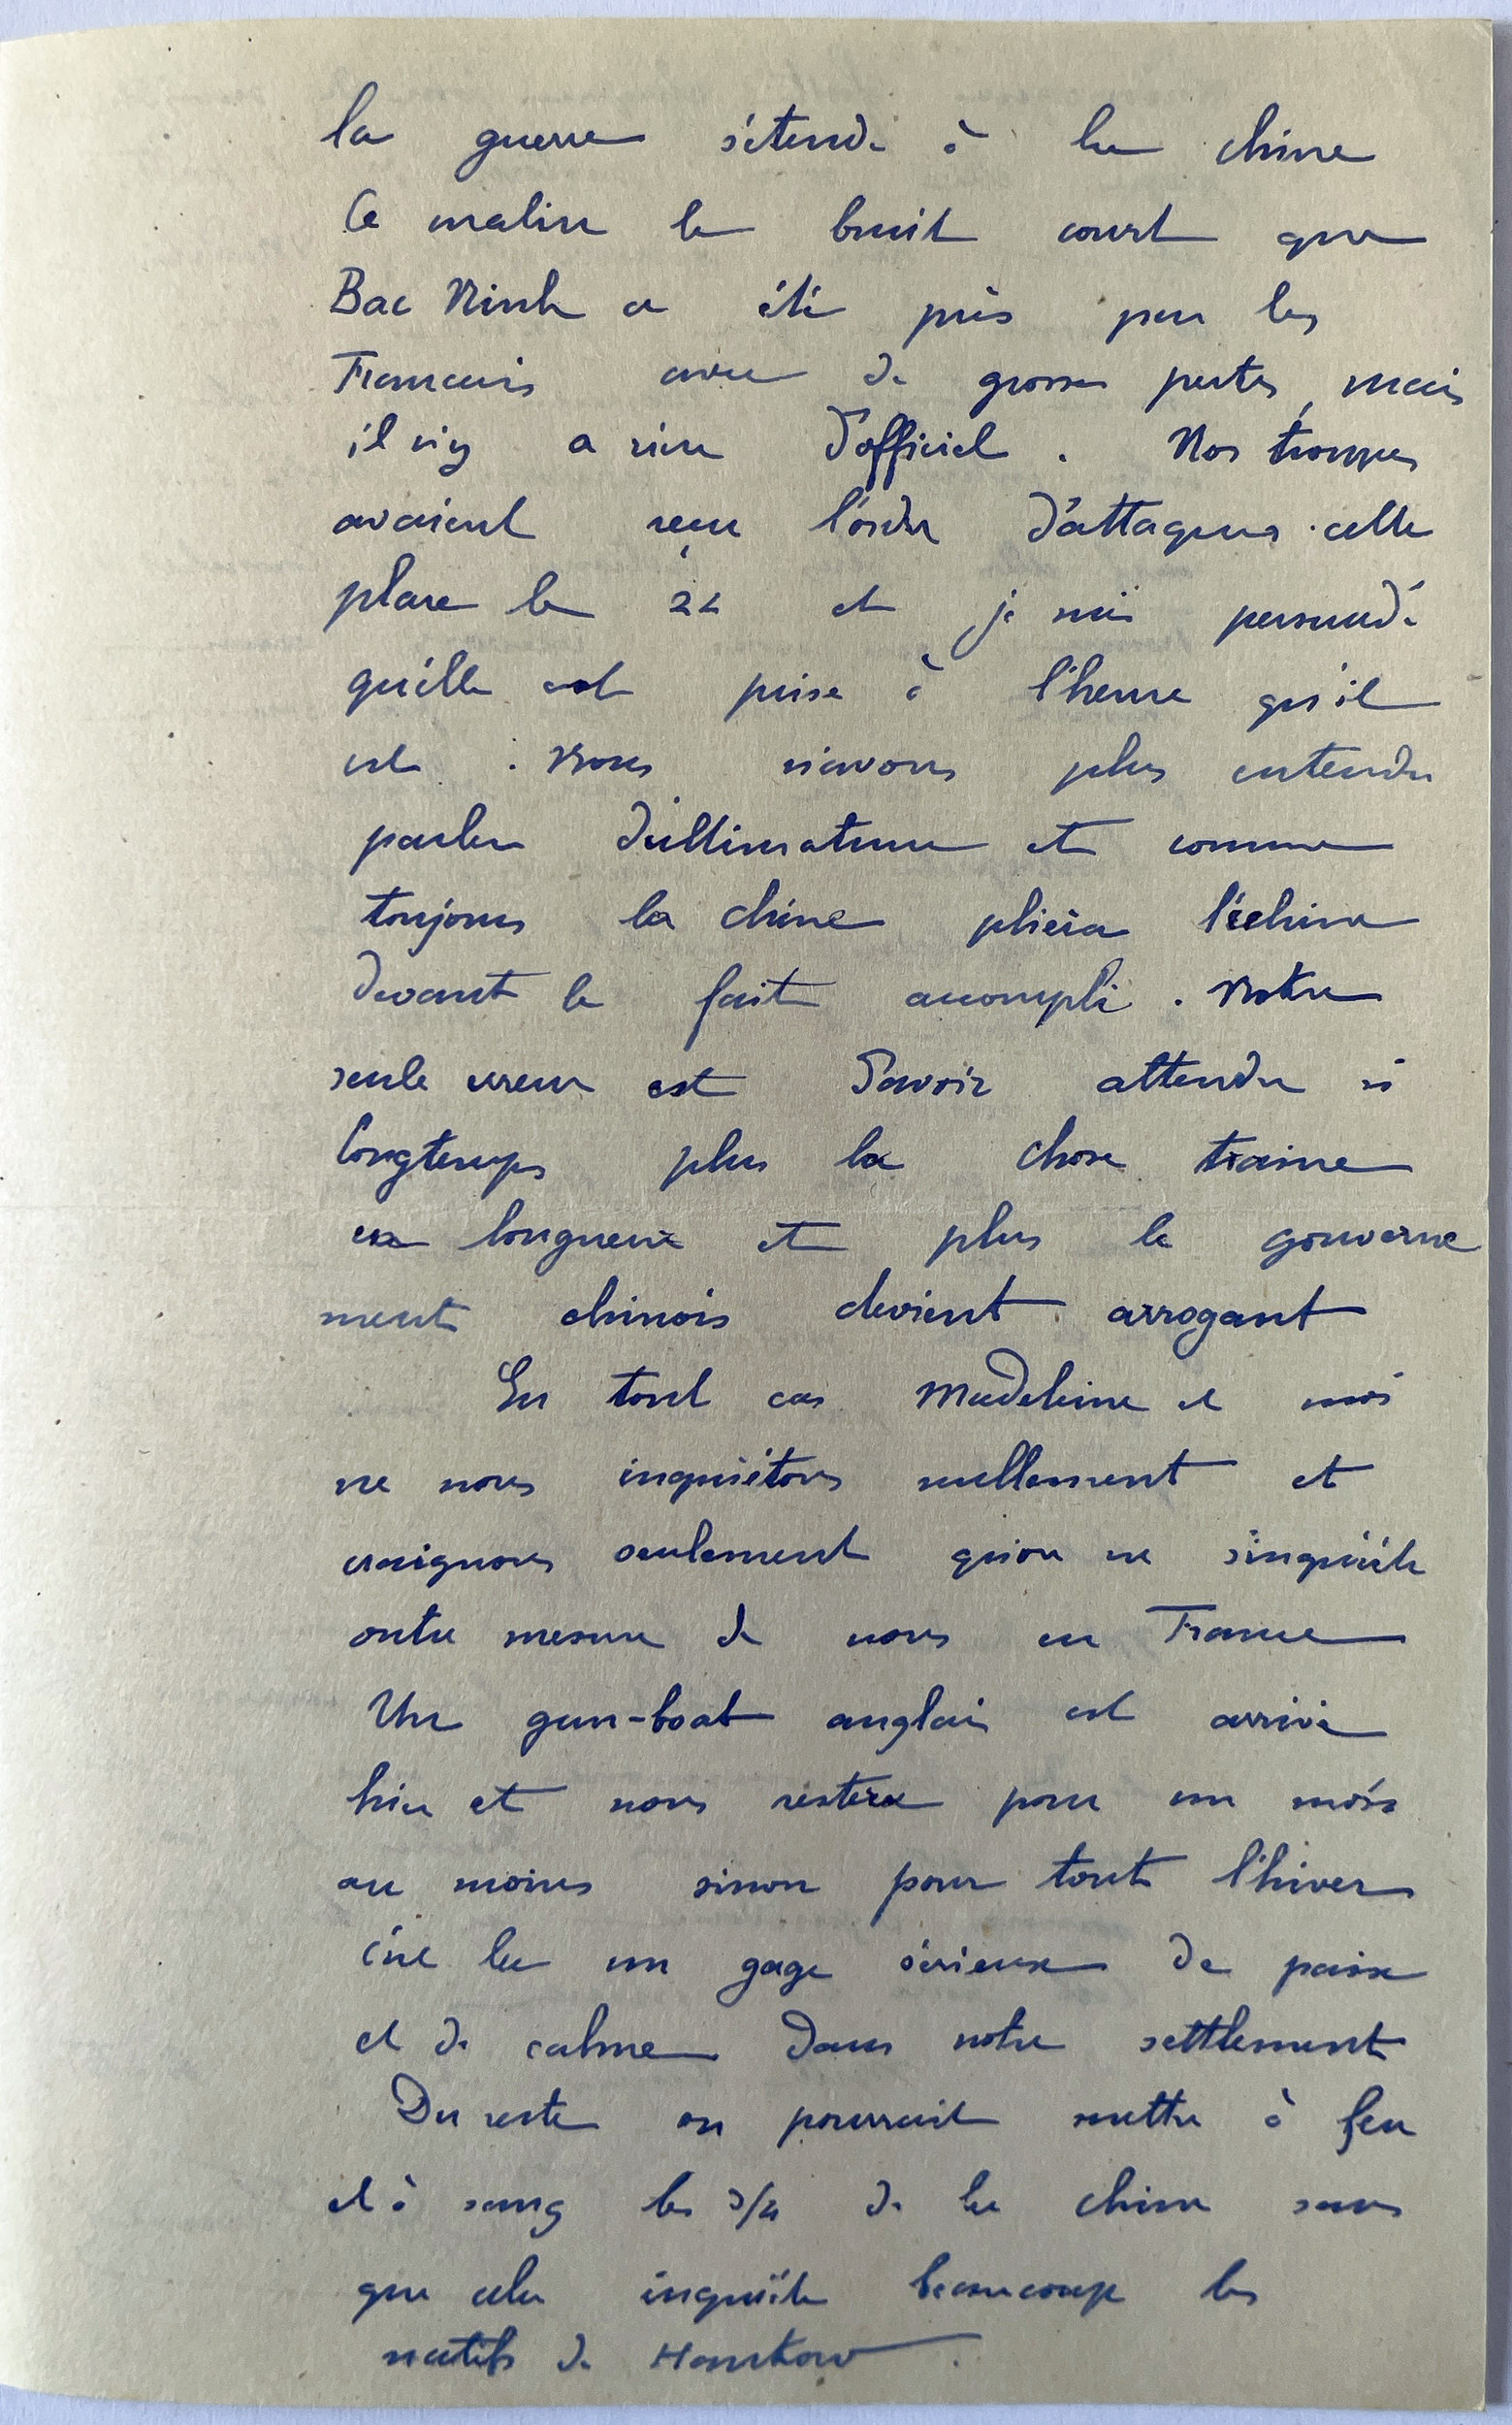 la guerre s'étende à la chine
Ce matin le bruit court que
Bac Ninh a été pris par les
Francais avec de grosses pertes, mais
il n'y a rien d'officiel. Nos troupes
avaient reçu l'ordre d'attaquer cette
place le 22 et je suis persuadé
qu'elle est prise à l'heure qu'il
est. Nous n'avons plus entendu
parler d'ultimatum et comme
toujours la chine pliera l'échine
devant le fait accompli. Notre
seule erreur est d'avoir attendu si
longtemps plus la chose traine
en longueur et plus le gouverne
ment chinois devient arrogant
En tout cas Madeleine et moi
ne nous inquiétons nullement et
craignons seulement qu'on ne s'inquiète
outre mesure de nous en France
Un gun-boat anglais est arrivé
hier et nous restera pour un mois
au moins sinon pour tout l'hiver
c'est la un gage sérieux de paix
et de calme dans notre settlement
Du reste on pourrait mettre à feu
et à sang les 3/4 de la chine sans
que cela inquiète beaucoup les
natifs de Hankow.